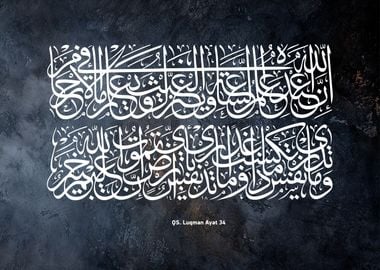 إن الله عنده علم الساعة وينزل الغيث ويعلم ما في الأرحام
وما تدري نفس ماذا تكسب غدا وما تدري نفس بأي أرض تموت إن الله عليم خبير
QS. Luqman Ayat 34